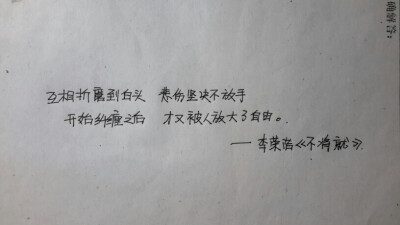 互相折磨到白头 悲伤坚决不放手
开始纠缠之后 才又被人放大了自由。
——李荣浩《不将就》
确解答: